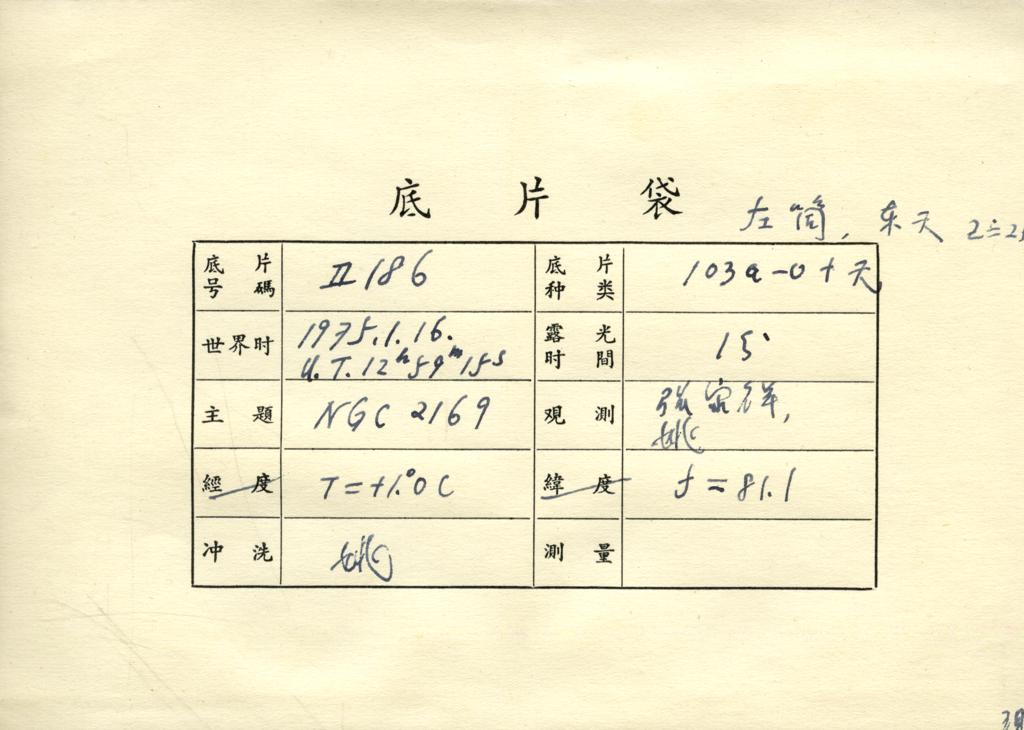 底片袋
左筒, 东天 Z=25
底片号碼 II 186 底片种类 103a-O+天
世界时 1975.1.16. U.T. 12h59m15s 露光时間 15'
主題 NGC 2169 观測 张家祥, 姚
經度 T=+1.°0C 緯度 f=81.1
冲洗 姚 測量